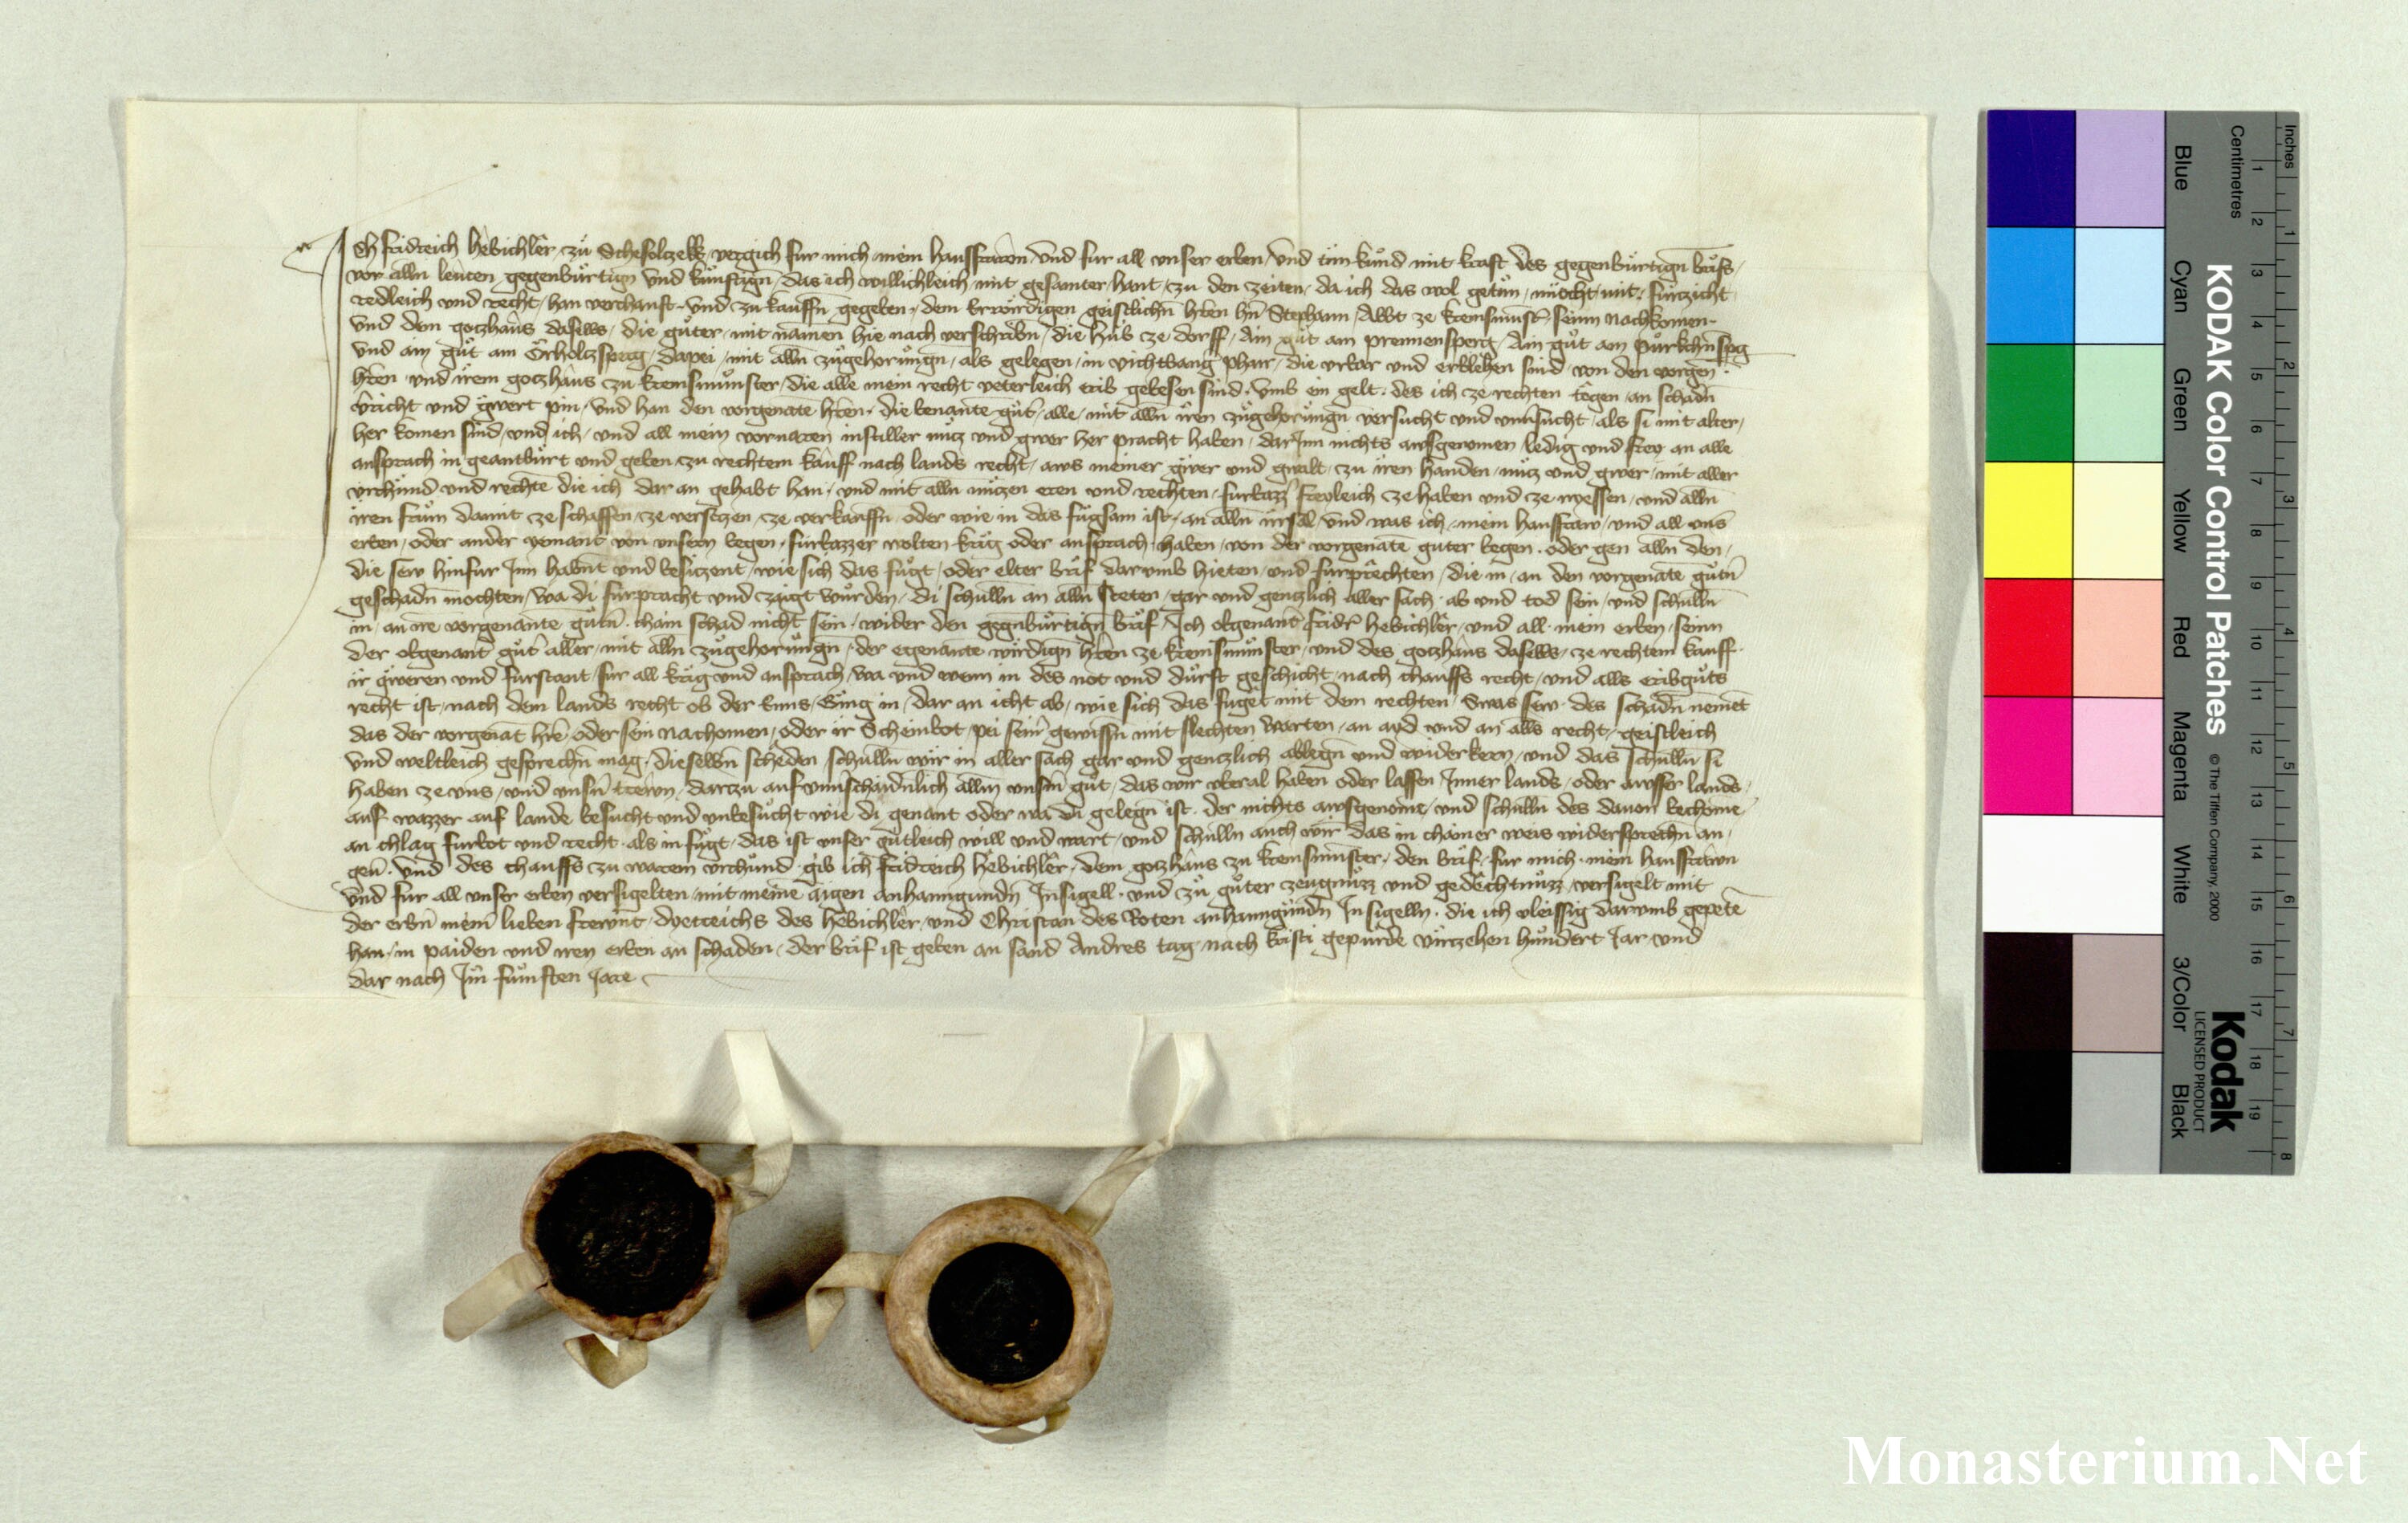 Ich fridreich hebichler zu Scherfolczekk vergich fur mich mein hausfrawn und fur all unser erben und tun kund mit kraft des gegenburtign briefs
vor alln leuten gegenburtign und kunftign das ich willichleich mit gesamter hant zu den zeiten da ich das wol getun mocht mit furzicht
redleich und recht han verchauft und zu kauffn gegeben dem Erwirdigen geistlichn hren hn Stephann Abbt ze kremsmunst seinn nachkomen
und dem gotzhaus daselbs die guter mit namen hie nach verschribn die hub ze dorff Ain gut am premensperg Ain gut am purkchnspg
und ain gut am Orholczsperg dapei mit alln zugehorungn als gelegen in vichtbang pharr die urbar und erblehen sind von den vorgen
hren und irem gotzhaus zu kremsmunster die alle mein recht veterleich erib gebesen sind umb ein gelt des ich ze rechten tegen an schadn
vericht und gwert pin und han den vorgenate hren die benante gut alle mit alln iren zugehorungn versucht und unversucht als si mit alter
her komen sind und ich und all mein vorvaren in stiller nucz und gwer her pracht haben darInn nichts ausgenomen ledig und frey an alle
ansprach in geantburt und geben zu rechtem kauff nach lands recht aws meiner gwer und gwalt zu iren handen nucz und gwer mit aller
urchund und rechte die ich dar an gehabt han und mit alln nuczen eren und rechten furbazz freyleich ze haben und ze niessen und alln
iren frum damit ze schaffen ze verseczen ze verkauffn oder wie in das fugsam ist an alln irrsal und was ich mein hausfraw und all uns
erben oder ander yemant von unsern begen furbazzer wolten krieg oder ansprach haben von der vorgenate guter begen oder gen alln den
die sew hinfur Inn habnt und besiczent wie sich das fugt oder elter brief darumb hieten und furprechten die in an den vorgenate gutn
geschadn mochten wa di furpracht und czaigt wurden di schulln an alln steten gar und genczlich aller sach ab und tod sein und schulln
in an ire vorgenante gutn chain schad nicht sein wider den gegnburtign brief Ich obgenant fridr hebichler und all mein erben seinn
der obgenant gut aller mit alln zugehorungn der egenante wirdign hren ze kremsmunster und des gotzhaus daselbs ze rechtem kauff
ir gweren und furstant fur all krieg und ansprach wa und wenn in des not und durft geschicht nach chauffs recht und alls eribguts
recht ist nach dem lands recht ob der Enns Ging in dar an icht ab wie sich das fuget mit dem rechten Swas sew des schadn nemet
das der vorgenat hre oder sein nachomen oder ir Scheinbot pei sein gewissn mit slechten warten an ayd und an alls recht geistleich
und weltleich gesprechn mag dieselbn scheden schulln wir in aller sach gar und genczlich ablegn und widerkern und das schulln si
haben ze uns und unsn trewn darczu auf unuschaidnlich allm unsm gut das wir uberal haben oder lassen Inner lands oder ausser lands
auf wazzer auf lande besucht und unbesucht wie di genant oder wa di gelegn ist der nichts ausgenome und schulln des davon bechome
an chlag furbot und recht als in fugt das ist unser gutleich will und wart und schulln auch wir das in chainer weis widersprechn an
gen Und des chauffs zu warem urchund gib ich fridreich hebichler dem gotzhaus zu kremsmunster den brief fur mich mein hausfrawn
und fur all unser erben versigelten mit meine aigen anhanngundn Insigell und zu guter zeugnuzz und gedechtnuzz versigelt mit
der erbn meinn lieben frewnt dyetreichs des hebichler und Christan des Roten anhanngundn Insigelln die ich vleissig darumb gepete
han in paiden und iren erben an schaden der brief ist geben an sand Andres tag nach kristi gepurde vierzehen hundert Jar und
dar nach Im funften Jare
KODAK Color Control Patches
© The Tiffen Company, 2000
Kodak
LICENSED PRODUCT
Inches
Centimetres
1 2 3 4 5 6 7 8 9 10 11 12 13 14 15 16 17 18 19
1 2 3 4 5 6 7 8
Blue Cyan Green Yellow Red Magenta White 3/Color Black
Monasterium.Net